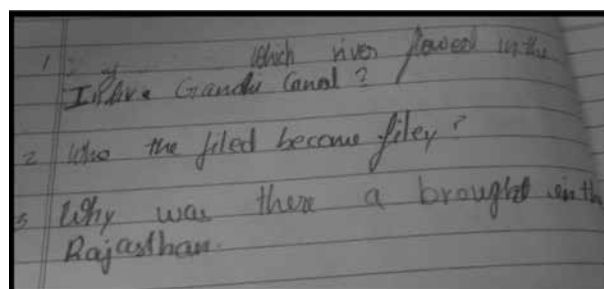 1 Which river flowed in the
Gandhi Canal ?
2 Who the filed become filey ?
3 Why was there a brought in the
Rajasthan.